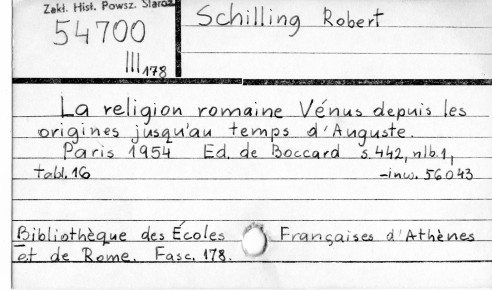 Zakł. Hist. Powsz. Staroż.
54700
III 178
Schilling Robert
La religion romaine Vénus depuis les
origines jusqu'au temps d'Auguste.
Paris 1954 Ed. de Boccard s. 442, nlb. 1,
tabl. 16 -inw. 56043
Bibliothèque des Écoles Françaises d'Athènes
et de Rome. Fasc. 178.